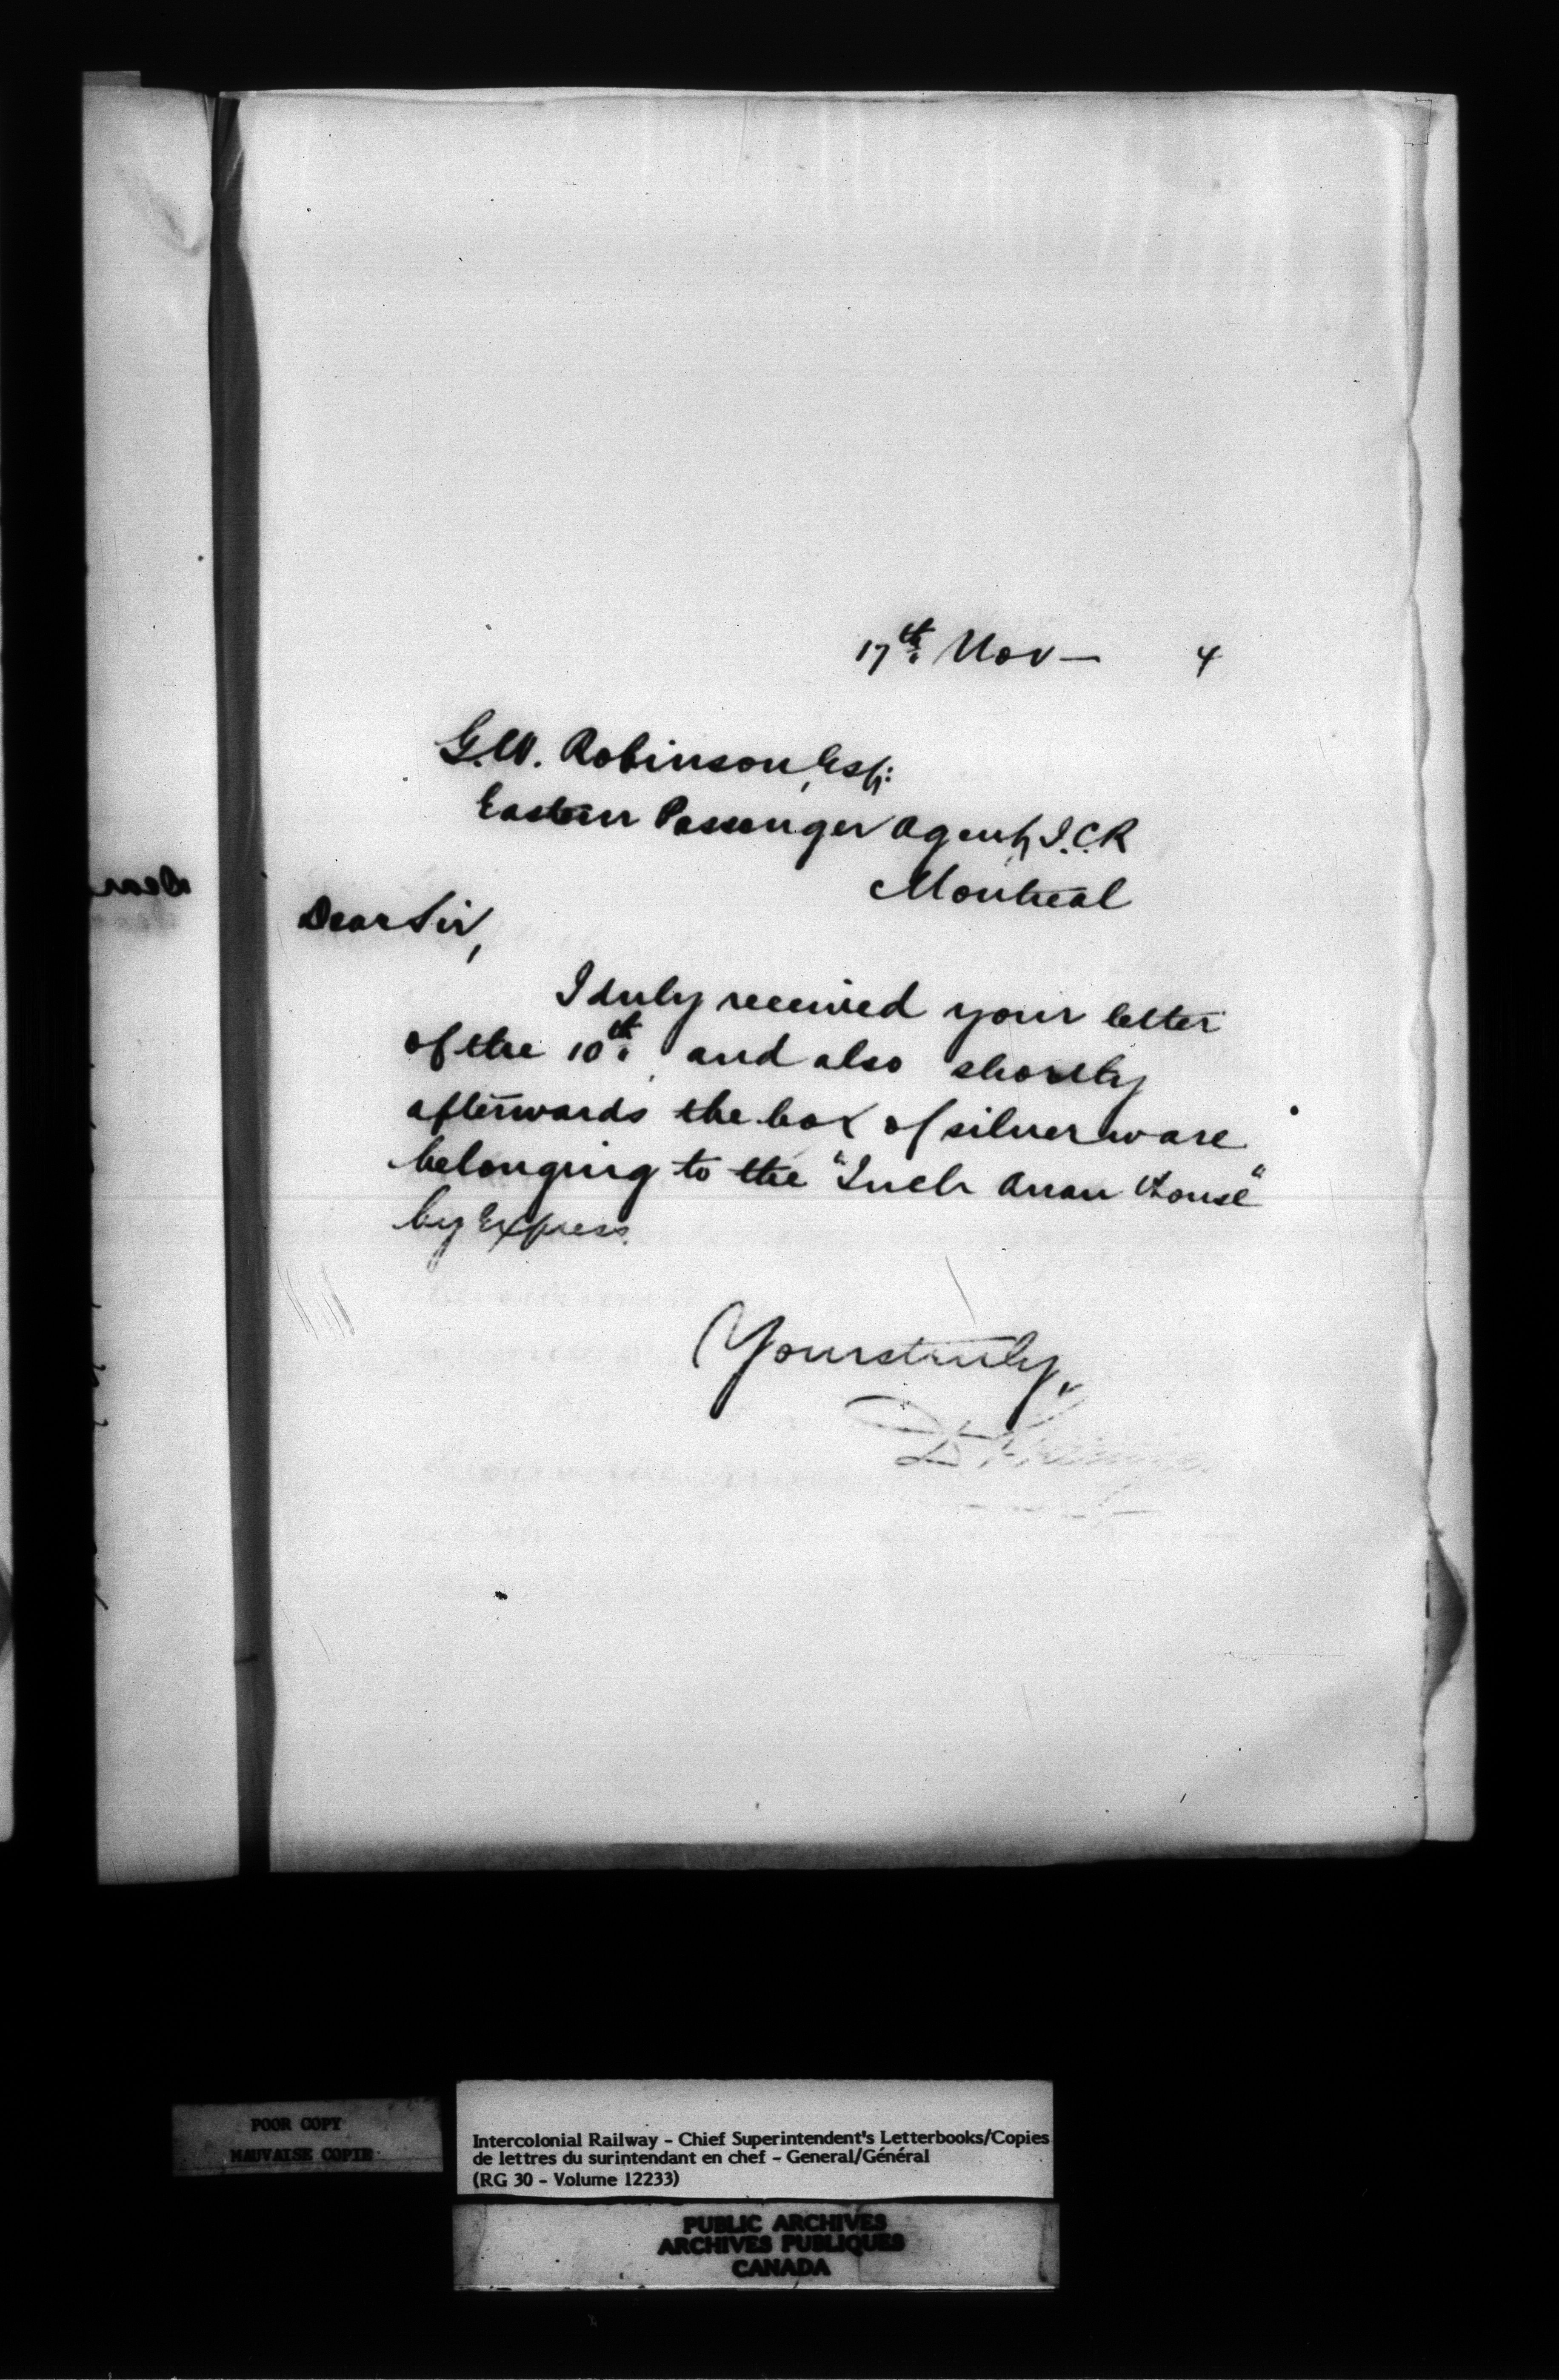 17th. Nov — 4
G.W. Robinson, Esq:
Eastern Passenger Agent, I.C.R
Montreal
Dear Sir,
I duly received your letter
of the 10th. and also shortly
afterwards the box of silverware
belonging to the "Inch Arran House"
by Express.
Yours truly,
POOR COPY
MAUVAISE COPIE
Intercolonial Railway - Chief Superintendent's Letterbooks/Copies
de lettres du surintendant en chef - General/Général
(RG 30 - Volume 12233)
PUBLIC ARCHIVES
ARCHIVES PUBLIQUES
CANADA